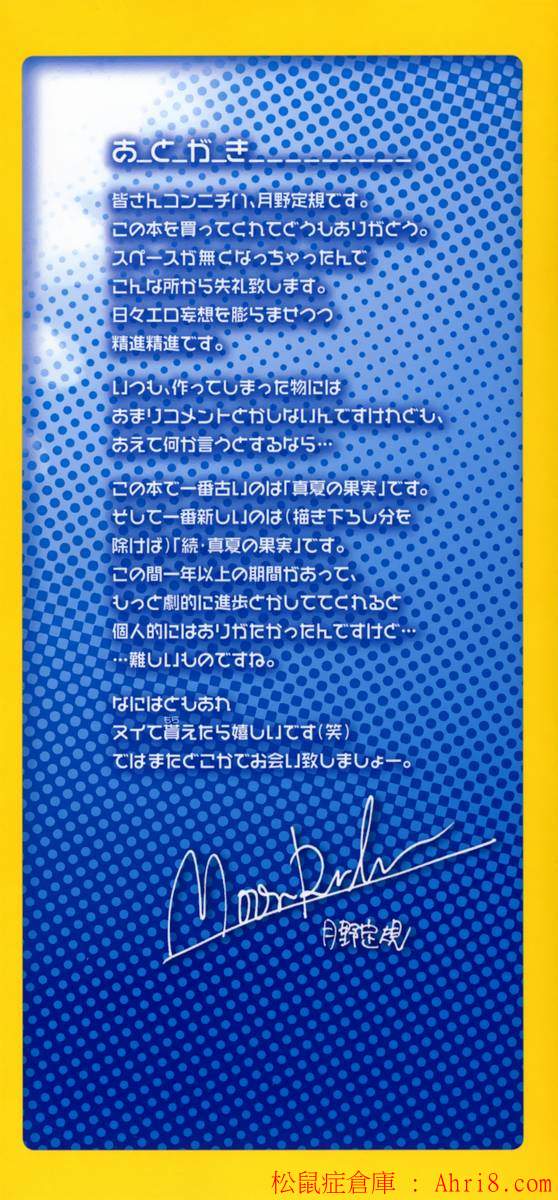 あ_と_が_き_________
皆さんコンニチハ、月野定規です。
この本を買ってくれてどうもありがとう。
スペースが無くなっちゃったんで
こんな所から失礼致します。
日々エロ妄想を膨らませつつ
精進精進です。
いつも、作ってしまった物には
あまりコメントとかしないんですけれども、
あえて何か言うとするなら…
この本で一番古いのは「真夏の果実」です。
そして一番新しいのは(描き下ろし分を
除けば)「続・真夏の果実」です。
この間一年以上の期間があって、
もっと劇的に進歩とかしててくれると
個人的にはありがたかったんですけど…
…難しいものですね。
なにはともあれ
ヌイて貰えたら嬉しいです(笑)
ではまたどこかでお会い致しましょー。
Moon Ruler
月野定規
松鼠症倉庫 : Ahri8.com